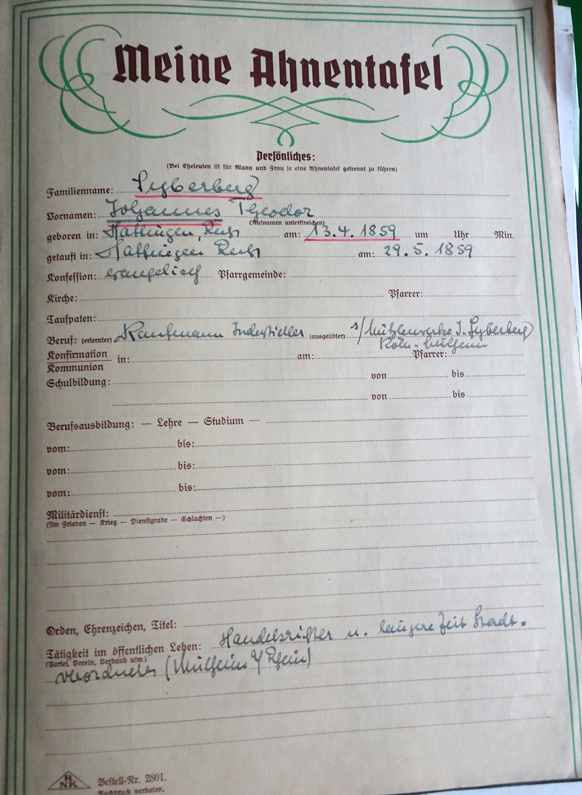 Meine Ahnentafel
Persönliches:
(Bei Eheleuten ist für Mann und Frau je eine Ahnentafel getrennt zu führen)
Familienname: Syberberg
Vornamen: Johannes Theodor
(Rufnamen unterstreichen)
geboren in: Hattingen, Ruhr am: 13.4. 1859 um Uhr Min.
getauft in: Hattingen Ruhr am: 29.5. 1859
Konfession: evangelisch Pfarrgemeinde:
Kirche: Pfarrer:
Taufpaten:
Beruf: (erlernter) Kaufmann Industrieller (ausgeübter) J. Syberberg
Köln-Mülheim
Konfirmation
Kommunion in: am: Pfarrer:
Schulbildung: von bis
von bis
Berufsausbildung: — Lehre — Studium —
vom: bis:
vom: bis:
vom: bis:
Militärdienst:
(Im Frieden — Krieg — Dienstgrade — Schlachten —)
Orden, Ehrenzeichen, Titel:
Tätigkeit im öffentlichen Leben: Handelsrichter u. längere Zeit Stadt-
(Partei, Verein, Verband usw.)
verordneter (Mülheim a/Rhein)
RNK
Bestell-Nr. 2801.
Nachdruck verboten.